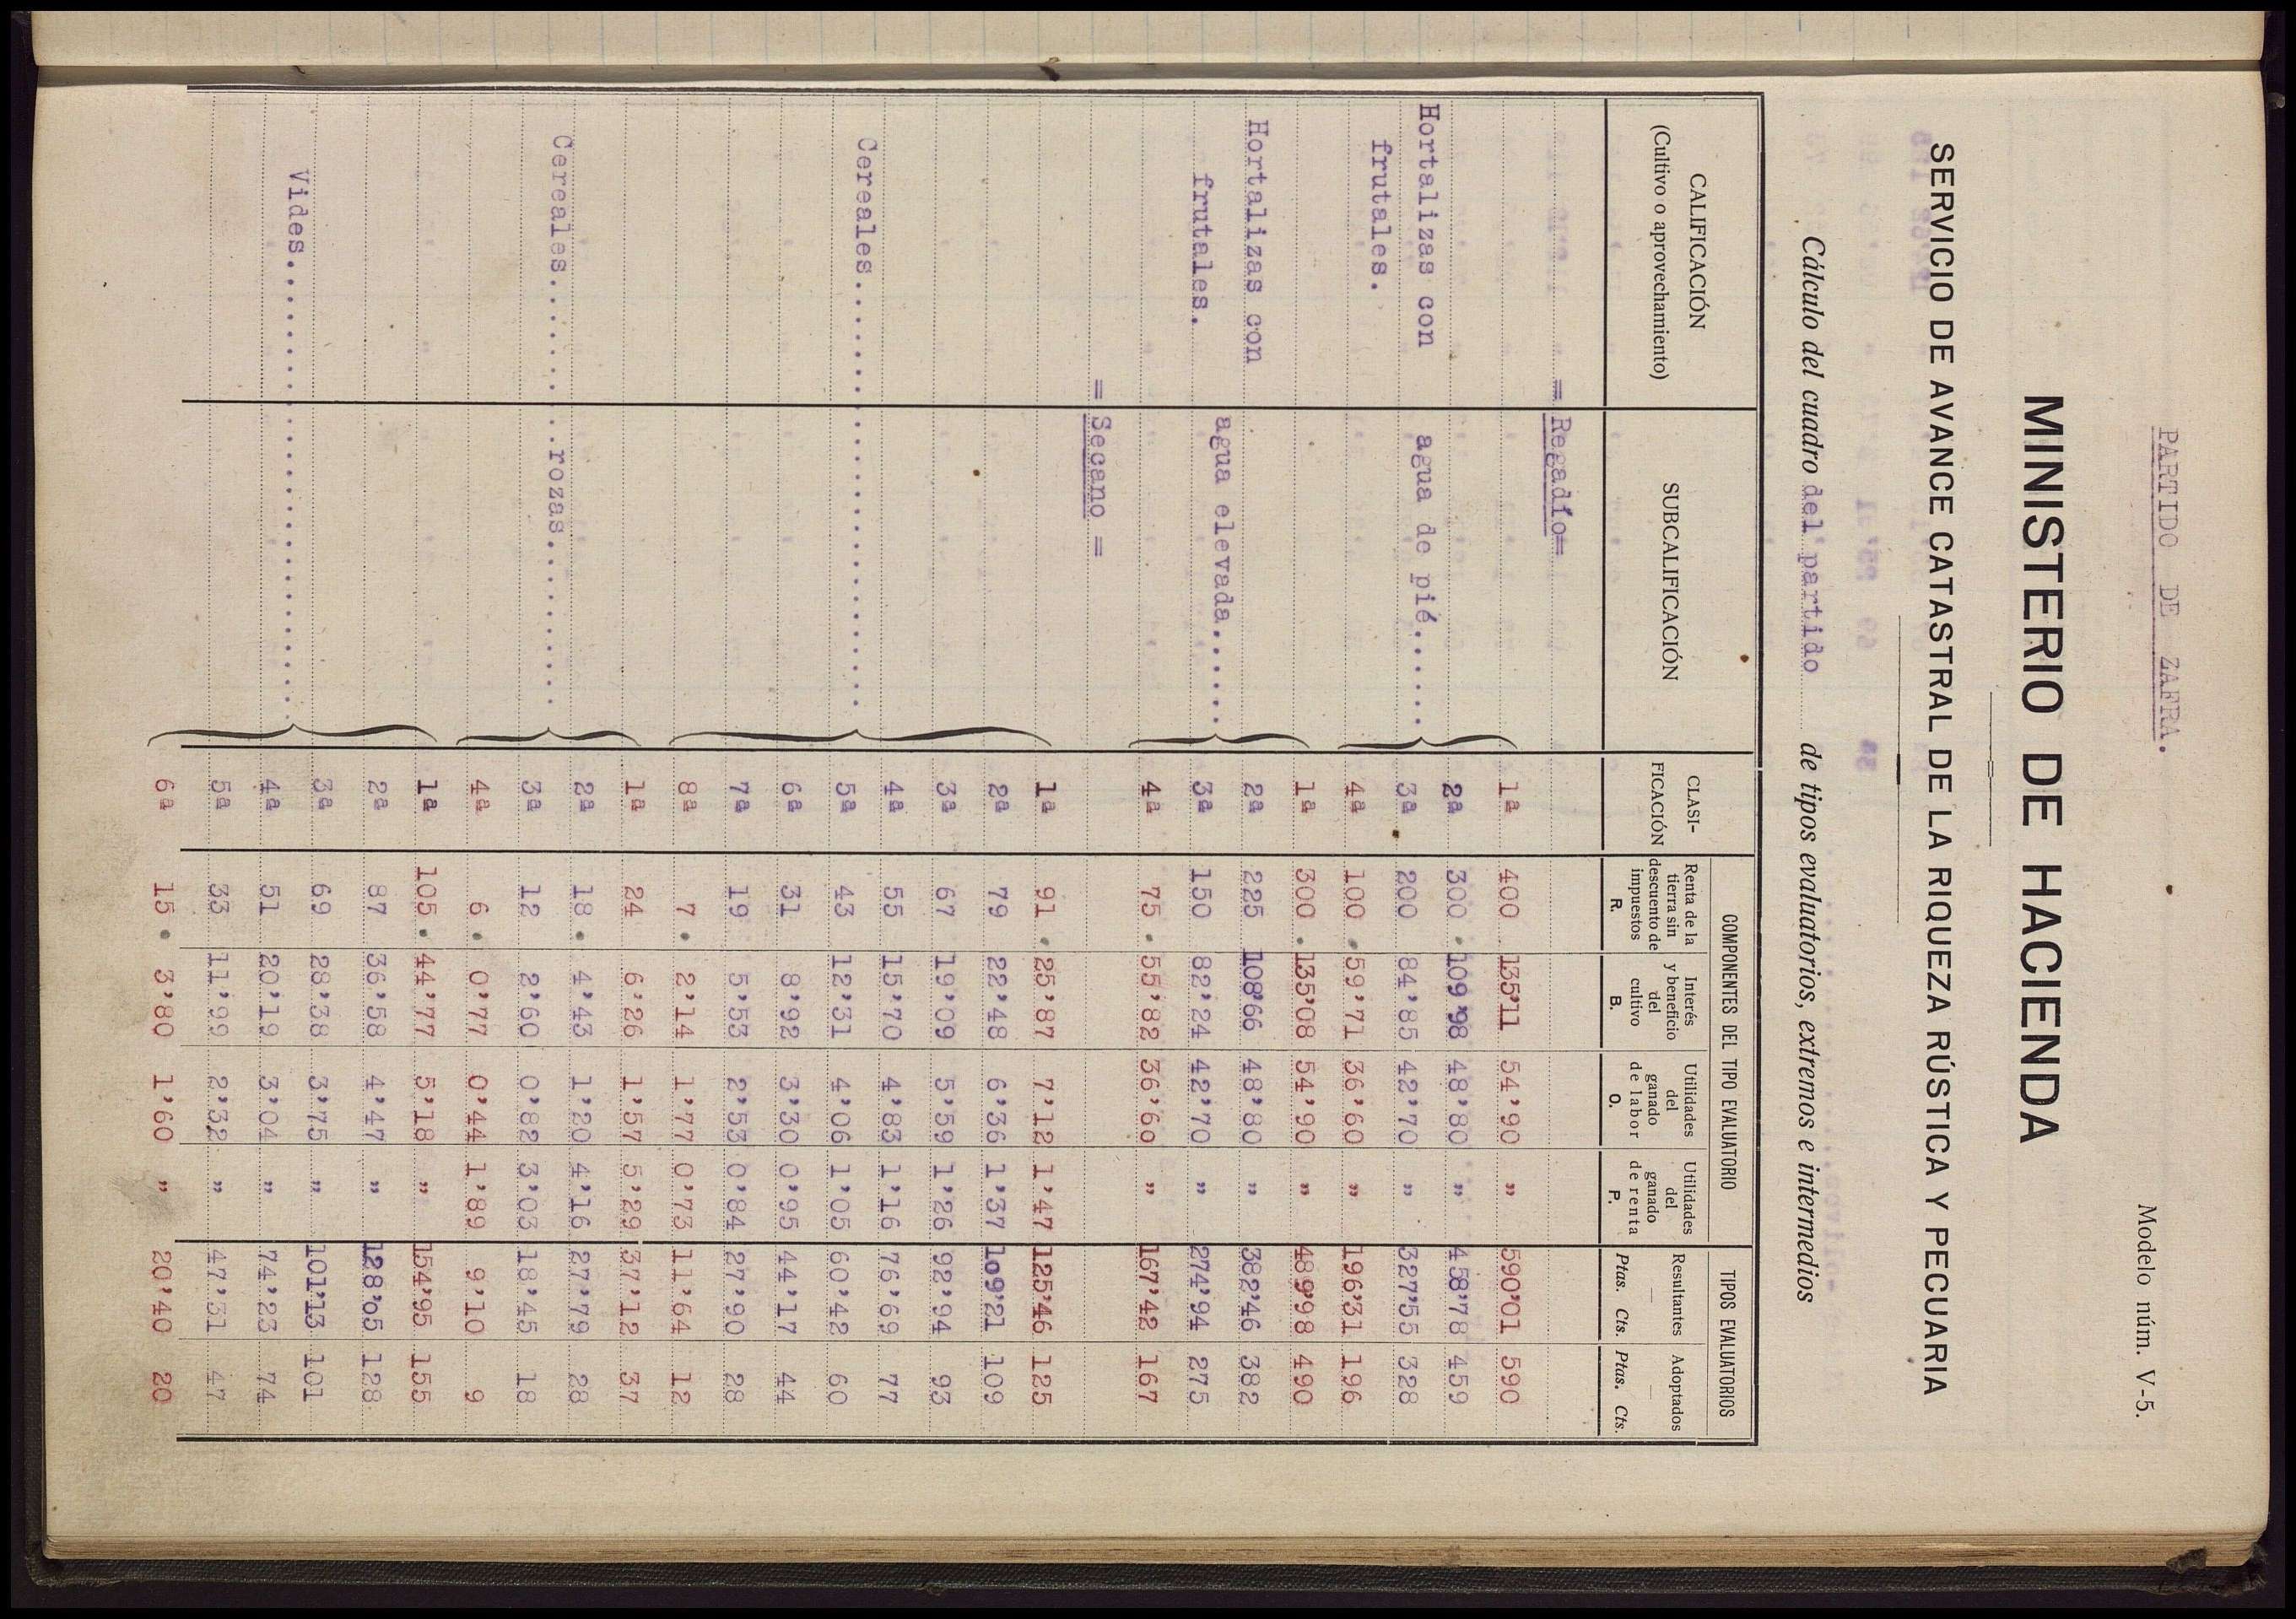 PARTIDO DE ZAFRA.
Modelo núm. V-5.
MINISTERIO DE HACIENDA
SERVICIO DE AVANCE CATASTRAL DE LA RIQUEZA RÚSTICA Y PECUARIA
Cálculo del cuadro del partido de tipos evaluatorios, extremos e intermedios
CALIFICACIÓN
(Cultivo o aprovechamiento)
SUBCALIFICACIÓN
CLASI-
FICACIÓN
COMPONENTES DEL TIPO EVALUATORIO
Renta de la
tierra sin
descuento de
impuestos
R.
Interés
y beneficio
del
cultivo
B.
Utilidades
del
ganado
de labor
O.
Utilidades
del
ganado
de renta
P.
TIPOS EVALUATORIOS
Resultantes
—
Ptas. Cts.
Adoptados
—
Ptas. Cts.
= Regadío=
1ª 400 135'11 54'90 " 590'01 590
Hortalizas con agua de pié...... 2ª 300 . 109'98 48'80 " 458'78 459
frutales. 3ª 200 84'85 42'70 " 327'55 328
4ª 100 . 59'71 36'60 " 196'31 196
1ª 300 . 135'08 54'90 " 489'98 490
Hortalizas con agua elevada...... 2ª 225 108'66 48'80 " 382'46 382
frutales. 3ª 150 82'24 42'70 " 274'94 275
4ª 75 . 55'82 36'60 " 167'42 167
= Secano =
1ª 91 . 25'87 7'12 1'47 125'46 125
2ª 79 22'48 6'36 1'37 109'21 109
3ª 67 19'09 5'59 1'26 92'94 93
4ª 55 15'70 4'83 1'16 76'69 77
Cereales........................ 5ª 43 12'31 4'06 1'05 60'42 60
6ª 31 8'92 3'30 0'95 44'17 44
7ª 19 5'53 2'53 0'84 27'90 28
8ª 7 . 2'14 1'77 0'73 11'64 12
1ª 24 6'26 1'57 5'29 37'12 37
2ª 18 . 4'43 1'20 4'16 27'79 28
Cereales........rozas......... 3ª 12 2'60 0'82 3'03 18'45 18
4ª 6 . 0'77 0'44 1'89 9'10 9
1ª 105 . 44'77 5'18 " 154'95 155
2ª 87 36'58 4'47 " 128'05 128
3ª 69 28'38 3'75 " 101'13 101
Vides.......................... 4ª 51 20'19 3'04 " 74'23 74
5ª 33 11'99 2'32 " 47'31 47
6ª 15 . 3'80 1'60 " 20'40 20